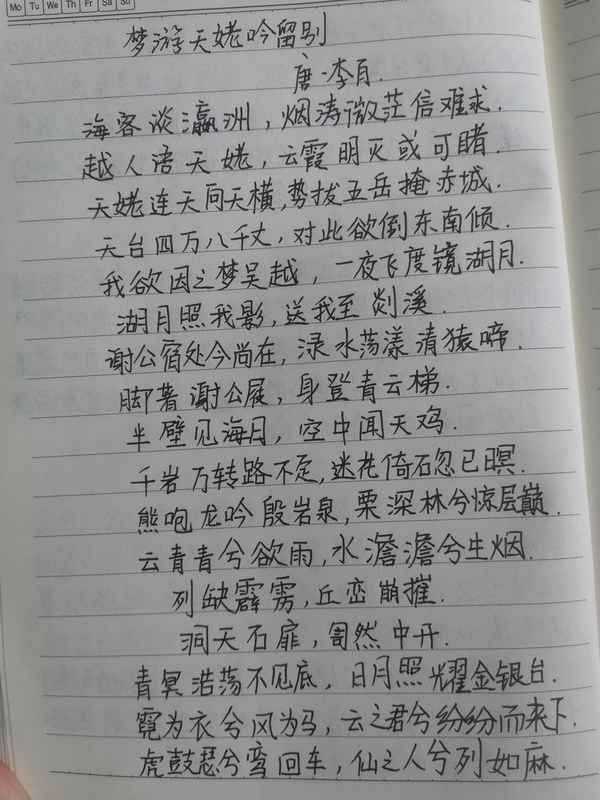 Mo Tu We Th Fr Sa Su
梦游天姥吟留别
唐·李白.
海客谈瀛洲，烟涛微茫信难求.
越人语天姥，云霞明灭或可睹.
天姥连天向天横,势拔五岳掩赤城.
天台四万八千丈，对此欲倒东南倾.
我欲因之梦吴越，一夜飞度镜湖月.
湖月照我影,送我至剡溪.
谢公宿处今尚在,渌水荡漾清猿啼.
脚著谢公屐，身登青云梯.
半壁见海日，空中闻天鸡.
千岩万转路不定,迷花倚石忽已暝.
熊咆龙吟殷岩泉,栗深林兮惊层巅.
云青青兮欲雨,水澹澹兮生烟.
列缺霹雳,丘峦崩摧.
洞天石扉,訇然中开.
青冥浩荡不见底，日月照耀金银台.
霓为衣兮风为马，云之君兮纷纷而来下.
虎鼓瑟兮鸾回车，仙之人兮列如麻.